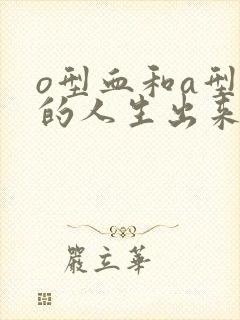 o型血和a型
的人生出来
嚴立華